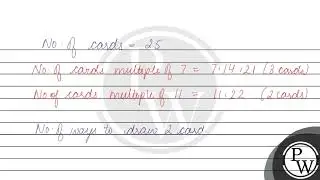 No. of cards = 25
No. of cards multiple of 7 = 7, 14, 21 (3 cards)
No of cards multiple of 11 = 11, 22 (2 cards)
No. of ways to draw 2 card
P
W
PW